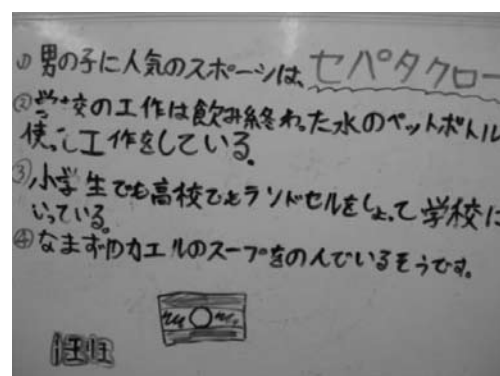 ① 男の子に人気のスポーツは、セパタクロー
② 学校の工作は飲み終わった水のペットボトル
使って工作をしている。
③ 小学生でも高校でもランドセルをしょって学校に
いっている。
④ なまずやカエルのスープをのんでいるそうです。